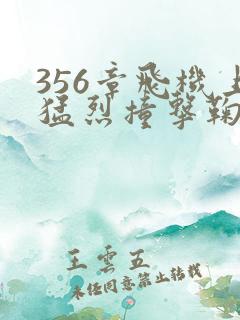 356章飛機上
猛烈撞擊鞠
王雲五
未經同意禁止轉載